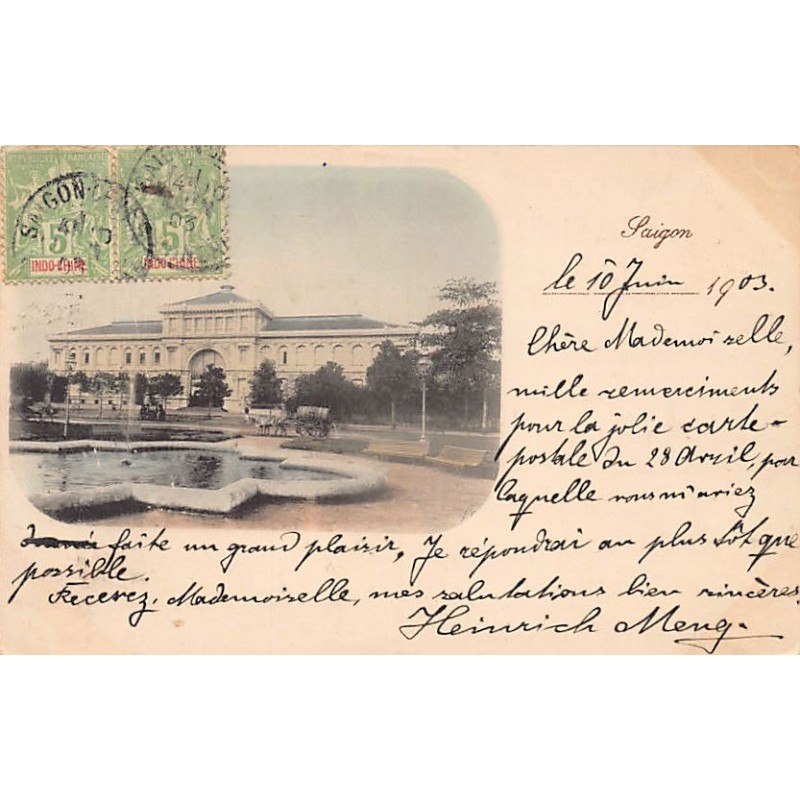 RÉPUBLIQUE FRANÇAISE
5 5
INDO-CHINE INDO-CHINE
SAIGON
Saigon
le 10 Juin 1903.
Chère Mademoiselle,
mille remerciments
pour la jolie carte-
postale du 28 Avril, par
laquelle vous m'aviez
faite un grand plaisir, Je répondrai au plus tôt que
possible.
Recevez, Mademoiselle, mes salutations bien sincères.
Heinrich Meng.